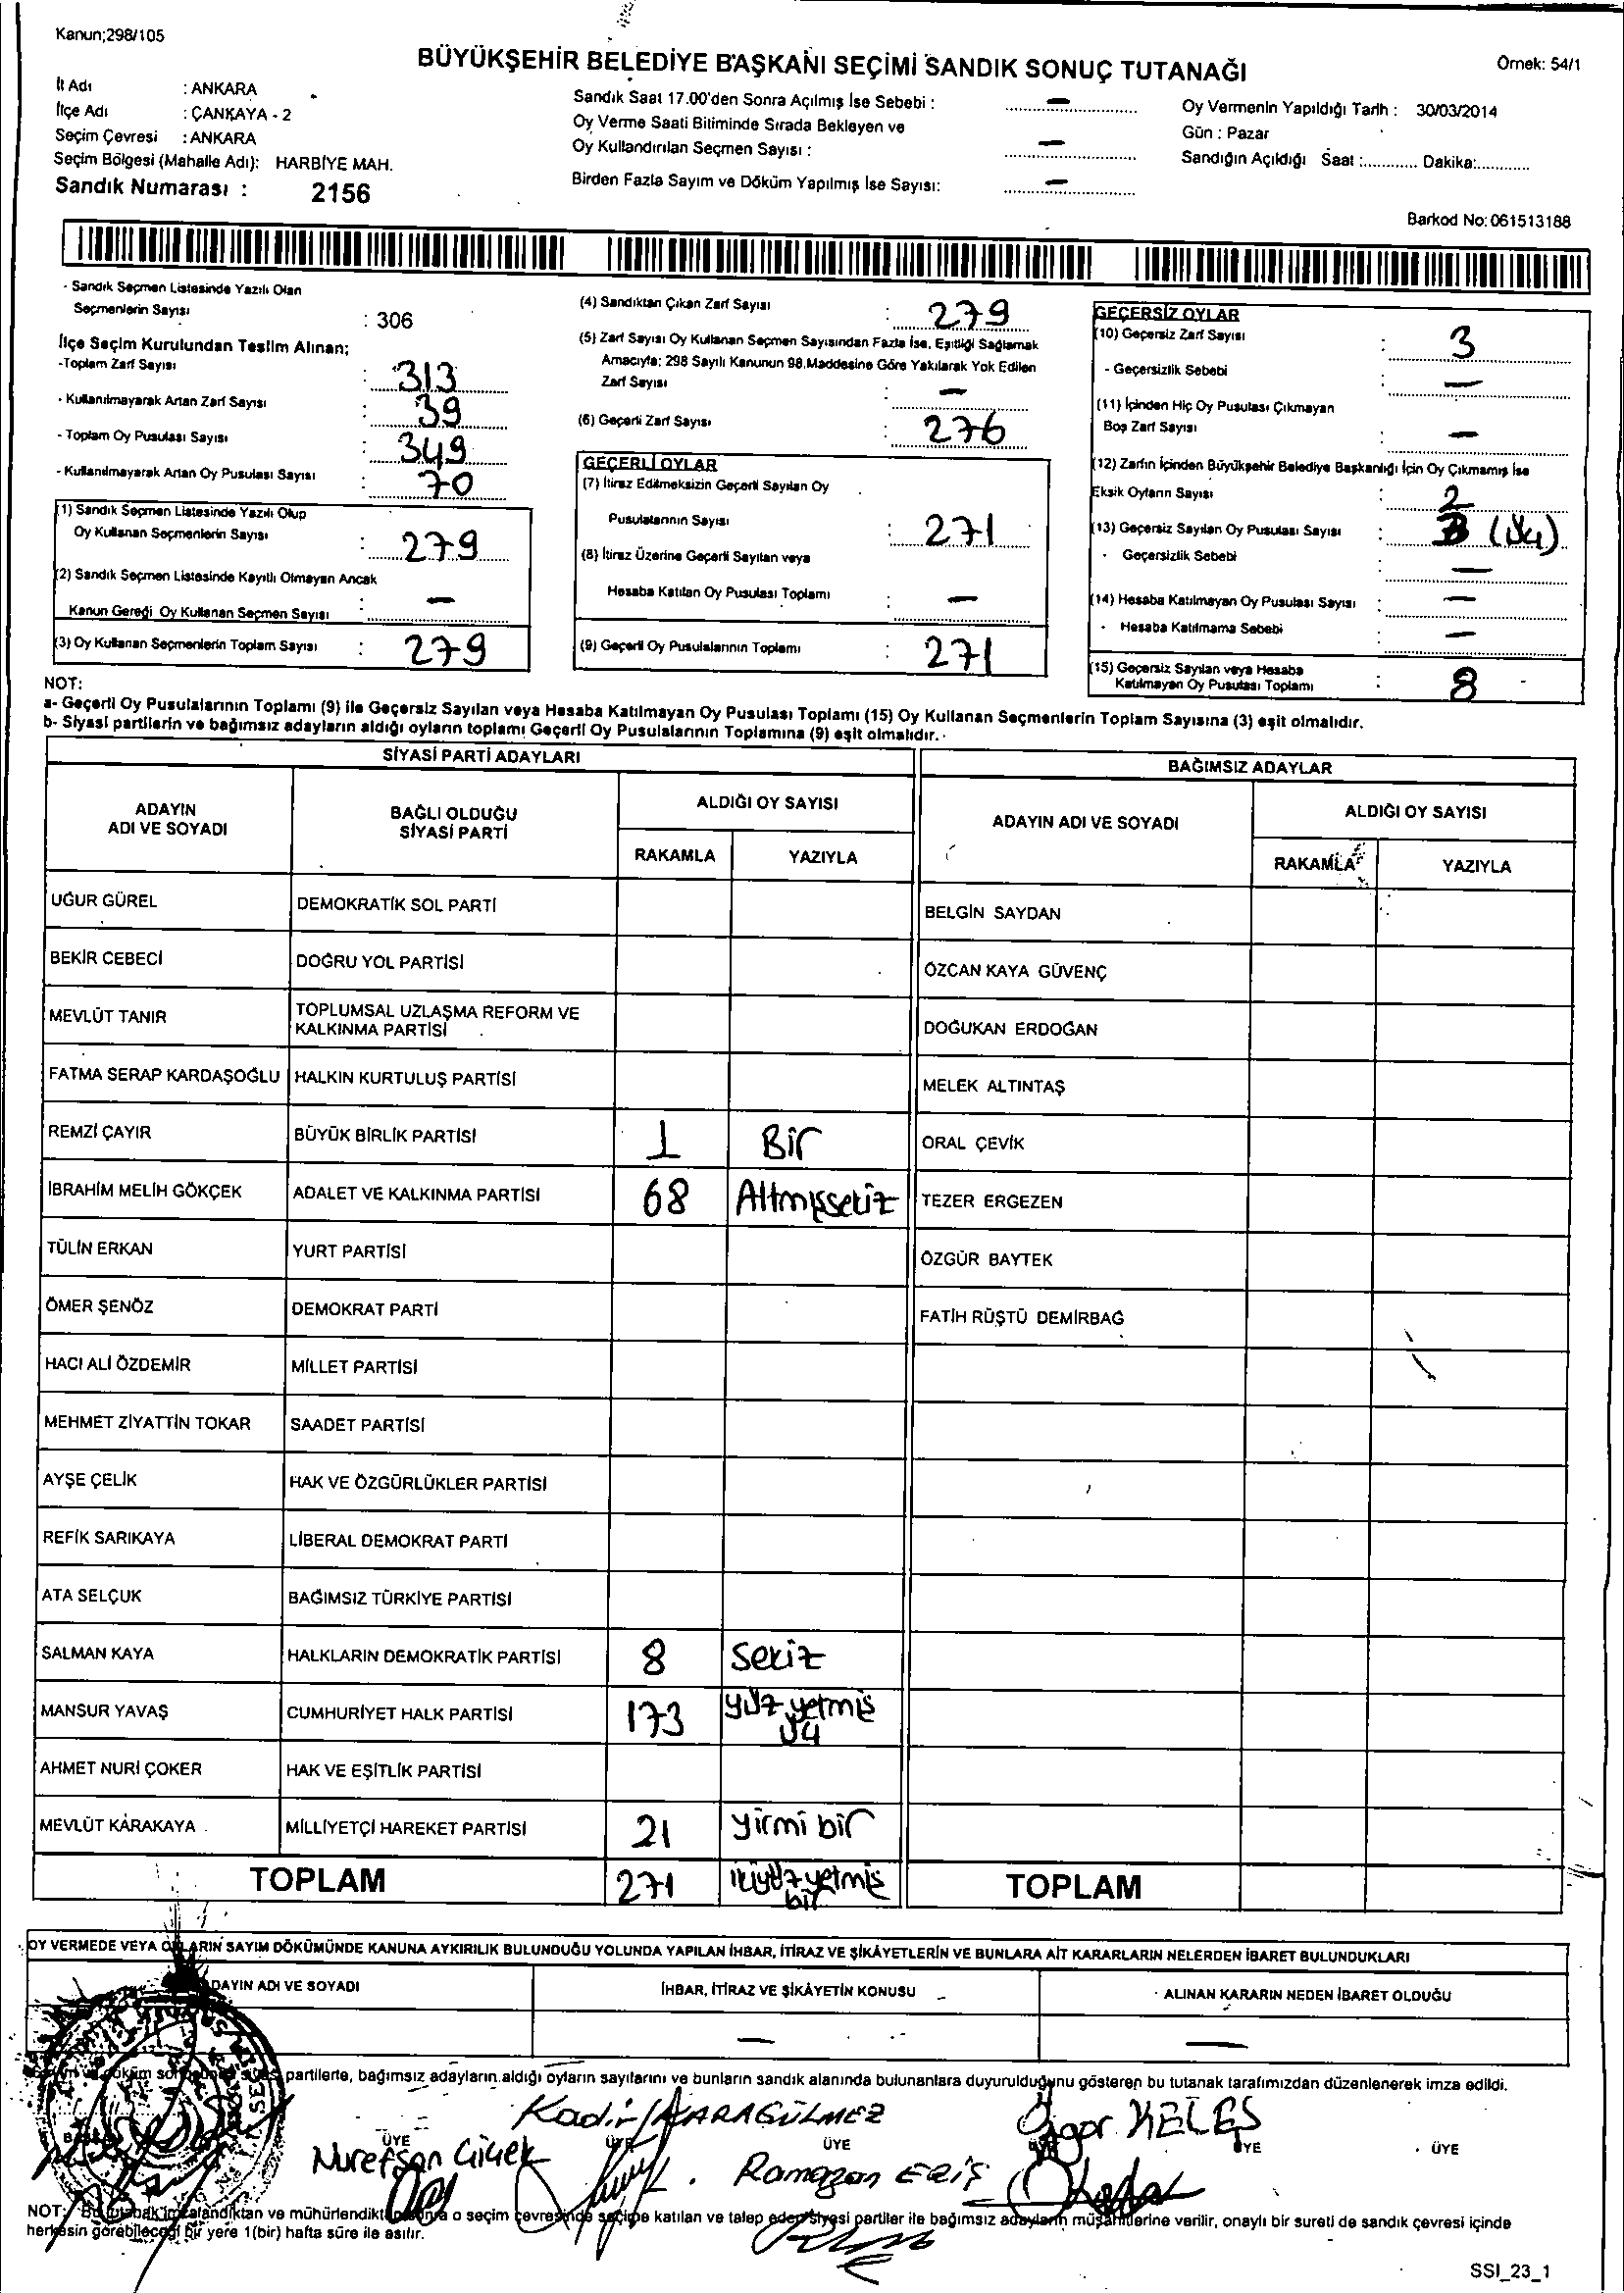 Kanun;298/105
BÜYÜKŞEHİR BELEDİYE BAŞKANI SEÇİMİ SANDIK SONUÇ TUTANAĞI
Örnek: 54/1
İl Adı : ANKARA
İlçe Adı : ÇANKAYA - 2
Seçim Çevresi : ANKARA
Seçim Bölgesi (Mahalle Adı): HARBİYE MAH.
Sandık Numarası : 2156
Sandık Saat 17.00'den Sonra Açılmış İse Sebebi : –
Oy Verme Saati Bitiminde Sırada Bekleyen ve
Oy Kullandırılan Seçmen Sayısı : –
Birden Fazla Sayım ve Döküm Yapılmış İse Sayısı: –
Oy Vermenin Yapıldığı Tarih : 30/03/2014
Gün : Pazar
Sandığın Açıldığı Saat :............ Dakika:............
Barkod No: 061513188
- Sandık Seçmen Listesinde Yazılı Olan
Seçmenlerin Sayısı : 306
İlçe Seçim Kurulundan Teslim Alınan;
-Toplam Zarf Sayısı : 313
- Kullanılmayarak Artan Zarf Sayısı : 39
- Toplam Oy Pusulası Sayısı : 349
- Kullanılmayarak Artan Oy Pusulası Sayısı : 70
(1) Sandık Seçmen Listesinde Yazılı Olup
Oy Kullanan Seçmenlerin Sayısı : 279
(2) Sandık Seçmen Listesinde Kayıtlı Olmayan Ancak
Kanun Gereği Oy Kullanan Seçmen Sayısı : –
(3) Oy Kullanan Seçmenlerin Toplam Sayısı : 279
(4) Sandıktan Çıkan Zarf Sayısı : 279
(5) Zarf Sayısı Oy Kullanan Seçmen Sayısından Fazla İse, Eşitliği Sağlamak
Amacıyla; 298 Sayılı Kanunun 98.Maddesine Göre Yakılarak Yok Edilen
Zarf Sayısı : –
(6) Geçerli Zarf Sayısı : 276
GEÇERLİ OYLAR
(7) İtiraz Edilmeksizin Geçerli Sayılan Oy
Pusulalarının Sayısı : 271
(8) İtiraz Üzerine Geçerli Sayılan veya
Hesaba Katılan Oy Pusulası Toplamı : –
(9) Geçerli Oy Pusulalarının Toplamı : 271
GEÇERSİZ OYLAR
(10) Geçersiz Zarf Sayısı : 3
- Geçersizlik Sebebi : –
(11) İçinden Hiç Oy Pusulası Çıkmayan
Boş Zarf Sayısı : –
(12) Zarfın İçinden Büyükşehir Belediye Başkanlığı İçin Oy Çıkmamış İse
Eksik Oyların Sayısı : 2
(13) Geçersiz Sayılan Oy Pusulası Sayısı : 3 (üç)
- Geçersizlik Sebebi : –
(14) Hesaba Katılmayan Oy Pusulası Sayısı : –
- Hesaba Katılmama Sebebi : –
(15) Geçersiz Sayılan veya Hesaba
Katılmayan Oy Pusulası Toplamı : 8
NOT:
a- Geçerli Oy Pusulalarının Toplamı (9) ile Geçersiz Sayılan veya Hesaba Katılmayan Oy Pusulası Toplamı (15) Oy Kullanan Seçmenlerin Toplam Sayısına (3) eşit olmalıdır.
b- Siyasi partilerin ve bağımsız adayların aldığı oyların toplamı Geçerli Oy Pusulalarının Toplamına (9) eşit olmalıdır.
SİYASİ PARTİ ADAYLARI
ADAYIN ADI VE SOYADI
BAĞLI OLDUĞU SİYASİ PARTİ
ALDIĞI OY SAYISI
RAKAMLA YAZIYLA
UĞUR GÜREL DEMOKRATİK SOL PARTİ
BEKİR CEBECİ DOĞRU YOL PARTİSİ
MEVLÜT TANIR TOPLUMSAL UZLAŞMA REFORM VE
KALKINMA PARTİSİ
FATMA SERAP KARDAŞOĞLU HALKIN KURTULUŞ PARTİSİ
REMZİ ÇAYIR BÜYÜK BİRLİK PARTİSİ 1 Bir
İBRAHİM MELİH GÖKÇEK ADALET VE KALKINMA PARTİSİ 68 Altmışsekiz
TÜLİN ERKAN YURT PARTİSİ
ÖMER ŞENÖZ DEMOKRAT PARTİ
HACI ALİ ÖZDEMİR MİLLET PARTİSİ
MEHMET ZİYATTİN TOKAR SAADET PARTİSİ
AYŞE ÇELİK HAK VE ÖZGÜRLÜKLER PARTİSİ
REFİK SARIKAYA LİBERAL DEMOKRAT PARTİ
ATA SELÇUK BAĞIMSIZ TÜRKİYE PARTİSİ
SALMAN KAYA HALKLARIN DEMOKRATİK PARTİSİ 8 Sekiz
MANSUR YAVAŞ CUMHURİYET HALK PARTİSİ 173 yüz yetmiş
üç
AHMET NURİ ÇOKER HAK VE EŞİTLİK PARTİSİ
MEVLÜT KARAKAYA MİLLİYETÇİ HAREKET PARTİSİ 21 yirmi bir
TOPLAM 271 ikiyüz yetmiş
bir
BAĞIMSIZ ADAYLAR
ADAYIN ADI VE SOYADI
ALDIĞI OY SAYISI
RAKAMLA YAZIYLA
BELGİN SAYDAN
ÖZCAN KAYA GÜVENÇ
DOĞUKAN ERDOĞAN
MELEK ALTINTAŞ
ORAL ÇEVİK
TEZER ERGEZEN
ÖZGÜR BAYTEK
FATİH RÜŞTÜ DEMİRBAĞ
TOPLAM
OY VERMEDE VEYA OYLARIN SAYIM DÖKÜMÜNDE KANUNA AYKIRILIK BULUNDUĞU YOLUNDA YAPILAN İHBAR, İTİRAZ VE ŞİKÂYETLERİN VE BUNLARA AİT KARARLARIN NELERDEN İBARET BULUNDUKLARI
ADAYIN ADI VE SOYADI
İHBAR, İTİRAZ VE ŞİKÂYETİN KONUSU
ALINAN KARARIN NEDEN İBARET OLDUĞU
– –
partilerle, bağımsız adayların aldığı oyların sayılarını ve bunların sandık alanında bulunanlara duyurulduğunu gösteren bu tutanak tarafımızdan düzenlenerek imza edildi.
Kadir KARAGÜLMEZ
KELEŞ
ÜYE ÜYE ÜYE ÜYE ÜYE
Nurefşan Çiçek
Ramazan ERİŞ
NOT: Bu tutanak imzalandıktan ve mühürlendikten sonra o seçim çevresinde seçime katılan ve talep eden siyasi partiler ile bağımsız adayların müşahitlerine verilir, onaylı bir sureti de sandık çevresi içinde
herkesin görebileceği bir yere 1(bir) hafta süre ile asılır.
SSI_23_1